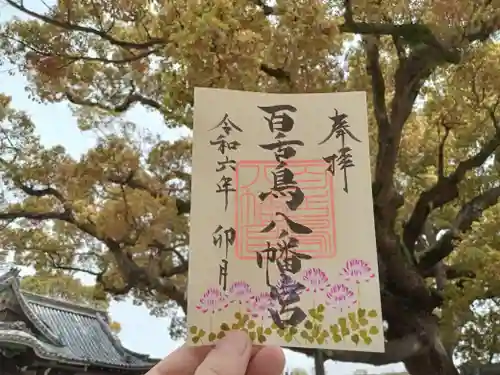 奉拝
百舌鳥八幡宮
令和六年 卯月